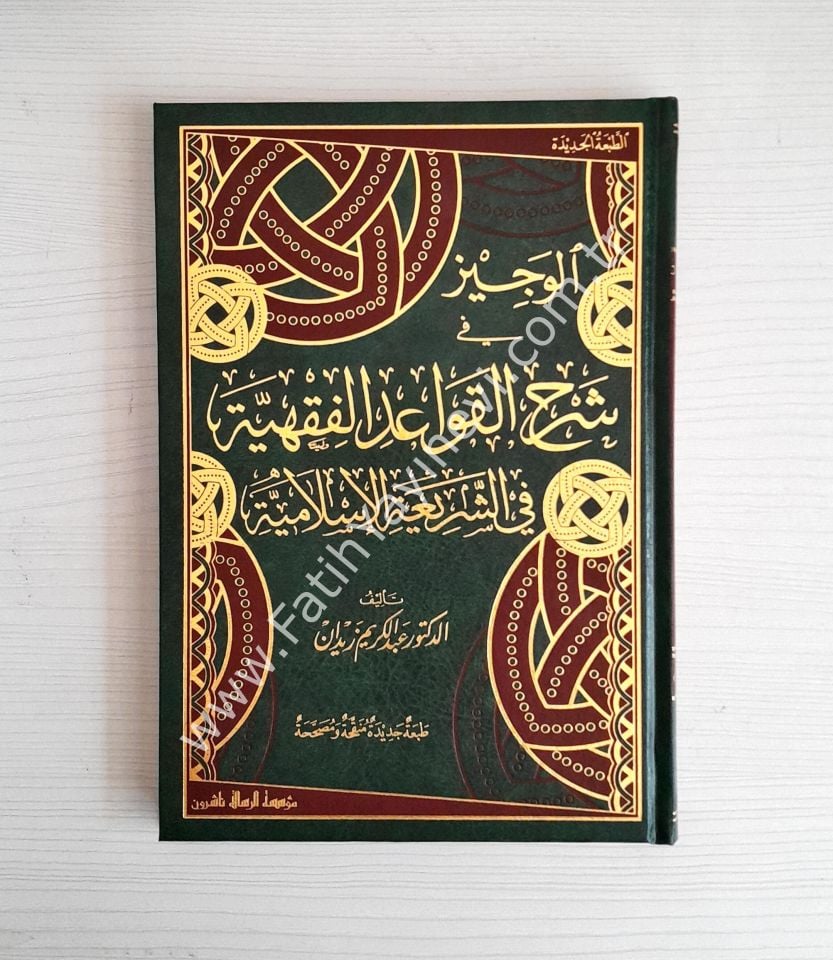 الطَّبْعَةُ الجَدِيْدَة
الوَجِيْز
في
شَرْحِ القَوَاعِدِ الفِقْهِيَّة
فِي الشَّرِيْعَةِ الإِسْلَامِيَّة
تَأليفُ
الدكتور عَبْد الكَرِيم زَيْدَان
طَبْعَةٌ جَدِيْدَةٌ مُنَقَّحَةٌ وَمُصَحَّحَةٌ
مؤسسة الرسالة ناشرون
www.FatihYayinevi.com.tr